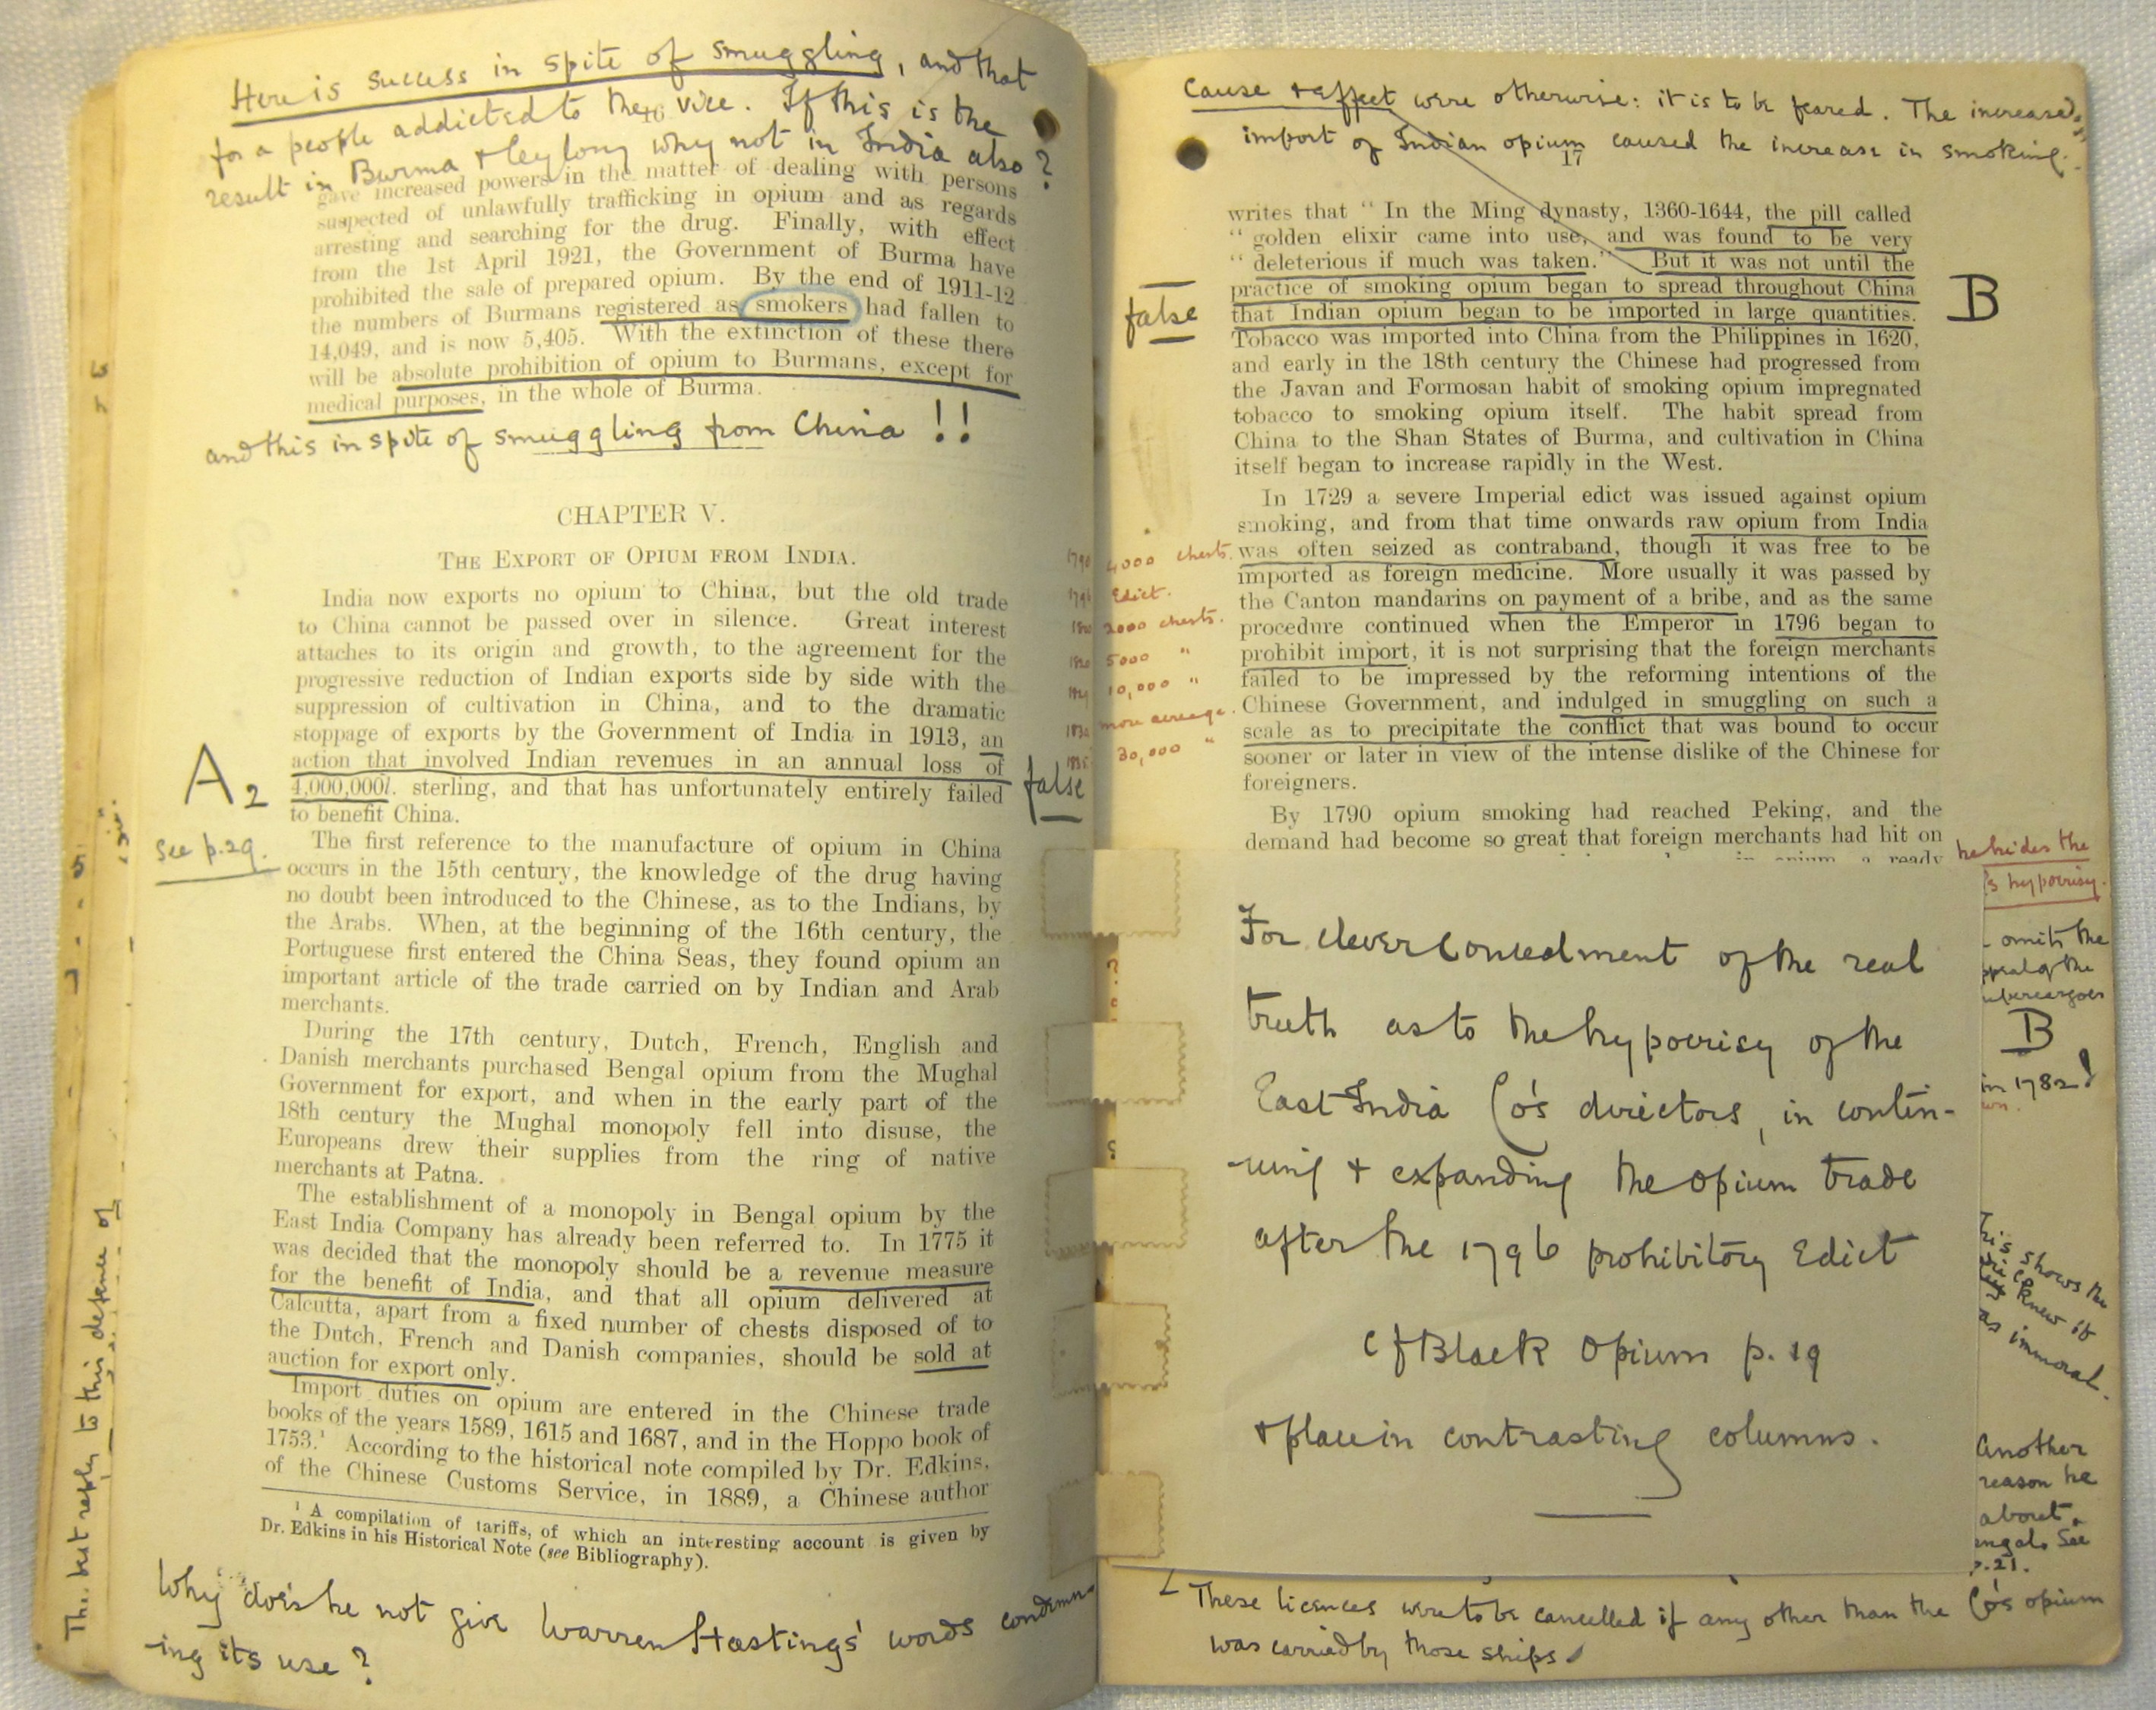 Here is success in spite of smuggling, and that
for a people addicted to the vice. If this is the
result in Burma + Ceylong why not in India also?
gave increased powers in the matter of dealing with persons
suspected of unlawfully trafficking in opium and as regards
arresting and searching for the drug. Finally, with effect
from the 1st April 1921, the Government of Burma have
prohibited the sale of prepared opium. By the end of 1911-12
the numbers of Burmans registered as smokers had fallen to
14,049, and is now 5,405. With the extinction of these there
will be absolute prohibition of opium to Burmans, except for
medical purposes, in the whole of Burma.
and this in spite of smuggling from China !!
CHAPTER V.
THE EXPORT OF OPIUM FROM INDIA.
India now exports no opium to China, but the old trade
to China cannot be passed over in silence. Great interest
attaches to its origin and growth, to the agreement for the
progressive reduction of Indian exports side by side with the
suppression of cultivation in China, and to the dramatic
stoppage of exports by the Government of India in 1913, an
action that involved Indian revenues in an annual loss of
4,000,000l. sterling, and that has unfortunately entirely failed
to benefit China.
A2
false
see p.29.
The first reference to the manufacture of opium in China
occurs in the 15th century, the knowledge of the drug having
no doubt been introduced to the Chinese, as to the Indians, by
the Arabs. When, at the beginning of the 16th century, the
Portuguese first entered the China Seas, they found opium an
important article of the trade carried on by Indian and Arab
merchants.
During the 17th century, Dutch, French, English and
Danish merchants purchased Bengal opium from the Mughal
Government for export, and when in the early part of the
18th century the Mughal monopoly fell into disuse, the
Europeans drew their supplies from the ring of native
merchants at Patna.
The establishment of a monopoly in Bengal opium by the
East India Company has already been referred to. In 1775 it
was decided that the monopoly should be a revenue measure
for the benefit of India, and that all opium delivered at
Calcutta, apart from a fixed number of chests disposed of to
the Dutch, French and Danish companies, should be sold at
auction for export only.
Import duties on opium are entered in the Chinese trade
books of the years 1589, 1615 and 1687, and in the Hoppo book of
1753.¹ According to the historical note compiled by Dr. Edkins,
of the Chinese Customs Service, in 1889, a Chinese author
¹ A compilation of tariffs, of which an interesting account is given by
Dr. Edkins in his Historical Note (see Bibliography).
Why does he not give Warren Hastings' words condemn-
-ing its use?
The best reply to this defence of
Cause + effect were otherwise: it is to be feared. The increased
import of Indian opium caused the increase in smoking.
17
writes that " In the Ming dynasty, 1360-1644, the pill called
" golden elixir came into use, and was found to be very
" deleterious if much was taken." But it was not until the
practice of smoking opium began to spread throughout China
that Indian opium began to be imported in large quantities.
Tobacco was imported into China from the Philippines in 1620,
and early in the 18th century the Chinese had progressed from
the Javan and Formosan habit of smoking opium impregnated
tobacco to smoking opium itself. The habit spread from
China to the Shan States of Burma, and cultivation in China
itself began to increase rapidly in the West.
false
B
In 1729 a severe Imperial edict was issued against opium
smoking, and from that time onwards raw opium from India
was often seized as contraband, though it was free to be
imported as foreign medicine. More usually it was passed by
the Canton mandarins on payment of a bribe, and as the same
procedure continued when the Emperor in 1796 began to
prohibit import, it is not surprising that the foreign merchants
failed to be impressed by the reforming intentions of the
Chinese Government, and indulged in smuggling on such a
scale as to precipitate the conflict that was bound to occur
sooner or later in view of the intense dislike of the Chinese for
foreigners.
1790 4000 chests.
1796 Edict.
2000 chests.
1820 5000 "
10,000 "
more acreage.
30,000 "
By 1790 opium smoking had reached Peking, and the
demand had become so great that foreign merchants had hit on
he hides the
's hypocrisy.
omits the
of the
B
in 1782!
For clever concealment of the real
truth as to the hypocrisy of the
East India Co's directors, in contin-
-uing + expanding the opium trade
after the 1796 prohibitory Edict
Cf Black Opium p. 19
+ place in contrasting columns.
This shows the
knew it
as immoral.
Another
reason he
about
See
p.21.
These licences were to be cancelled if any other than the Co's opium
was carried by those ships.